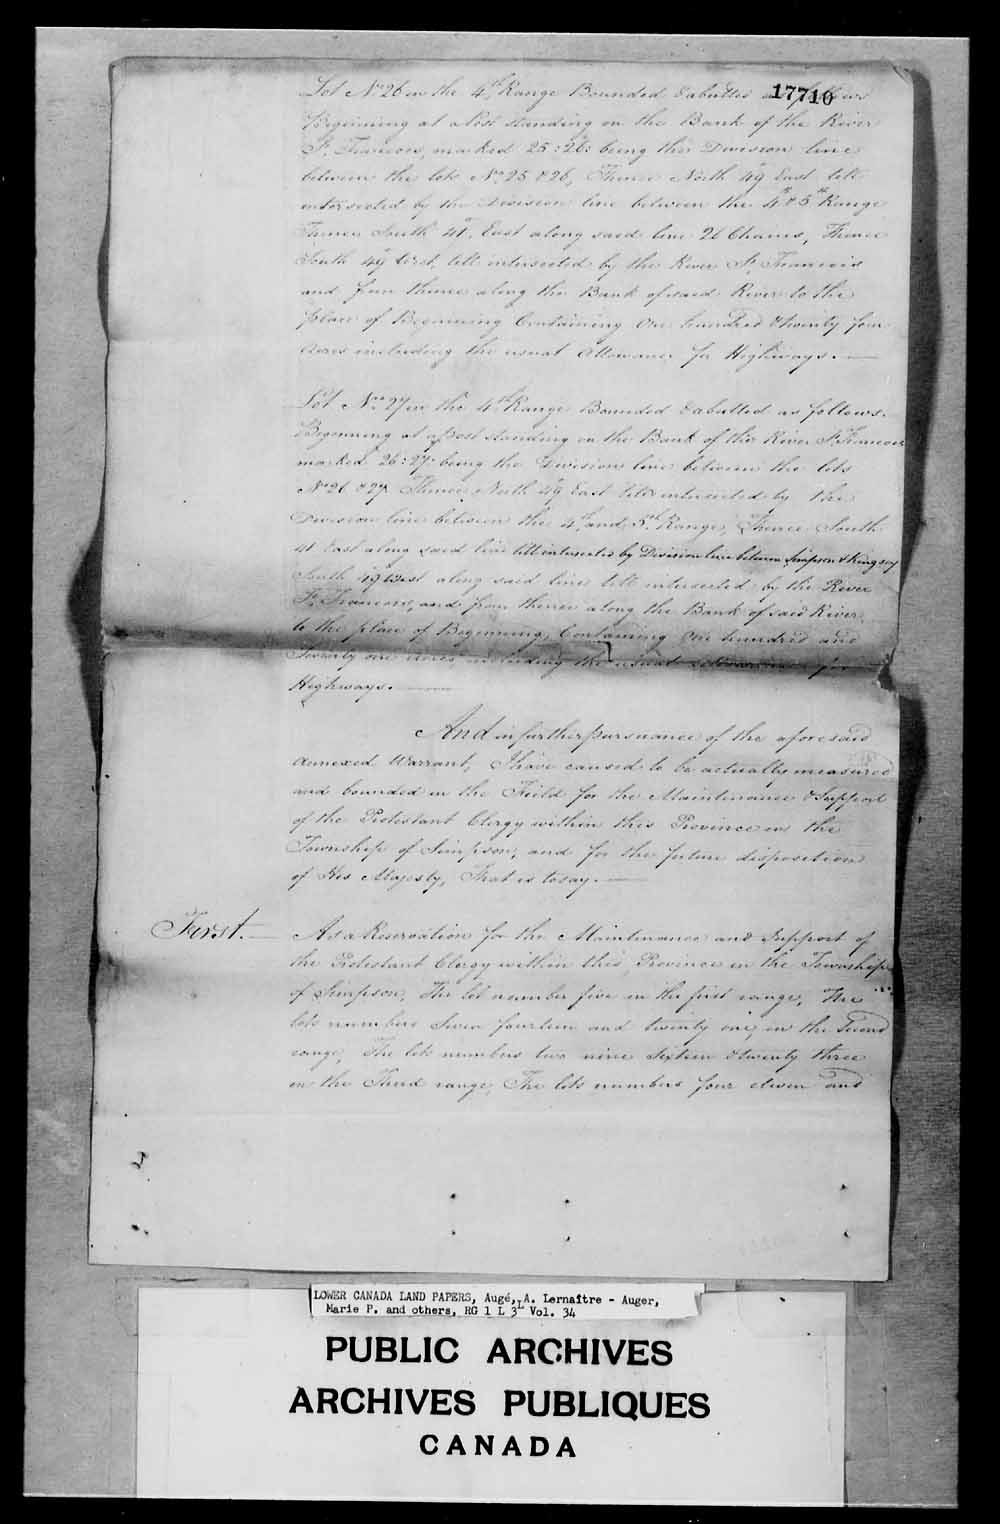 17710
Lot No. 26 in the 4th Range Bounded & abutted as follows
Beginning at a Post standing on the Bank of the River
St. Francois, marked 25:26: being the Division line
between the lots No. 25 & 26, Thence North 49 East till
intersected by the Division line between the 4th & 5th Range
Thence South 41 East along said line 26 Chains, Thence
South 49 West, till intersected by the River St. Francois
and from thence along the Bank of said River to the
place of Beginning Containing One hundred & twenty four
Acres including the usual Allowance for Highways.
Lot No. 27 in the 4th Range Bounded & abutted as follows.
Beginning at a Post standing on the Bank of the River St. Francois
marked 26:27: being the Division line between the lots
No. 26 & 27 Thence North 49 East till intersected by the
Division line between the 4th and 5th Range, Thence South
41 East along said line till intersected by Division line between Simpson & Kingsey
South 49 West along said line till intersected by the River
St. Francois, and from thence along the Bank of said River,
to the place of Beginning, Containing One hundred and
Twenty one Acres, including the usual allowance for
Highways.
And in further pursuance of the aforesaid
annexed Warrant, I have caused to be actually measured
and bounded in the Field for the Maintenance & Support
of the Protestant Clergy within this Province in the
Township of Simpson, and for the future disposition
of His Majesty, That is to say.
First. As a Reservation for the Maintenance and Support of
the Protestant Clergy within this Province in the Township
of Simpson, The lot number five in the first range, The
lots numbers seven fourteen and twenty one, in the Second
range, The lots numbers two nine sixteen & twenty three
in the Third range, The lots numbers four eleven and
LOWER CANADA LAND PAPERS, Augé, A. Lernaître - Auger,
Marie P. and others, RG 1 L 3L Vol. 34
PUBLIC ARCHIVES
ARCHIVES PUBLIQUES
CANADA